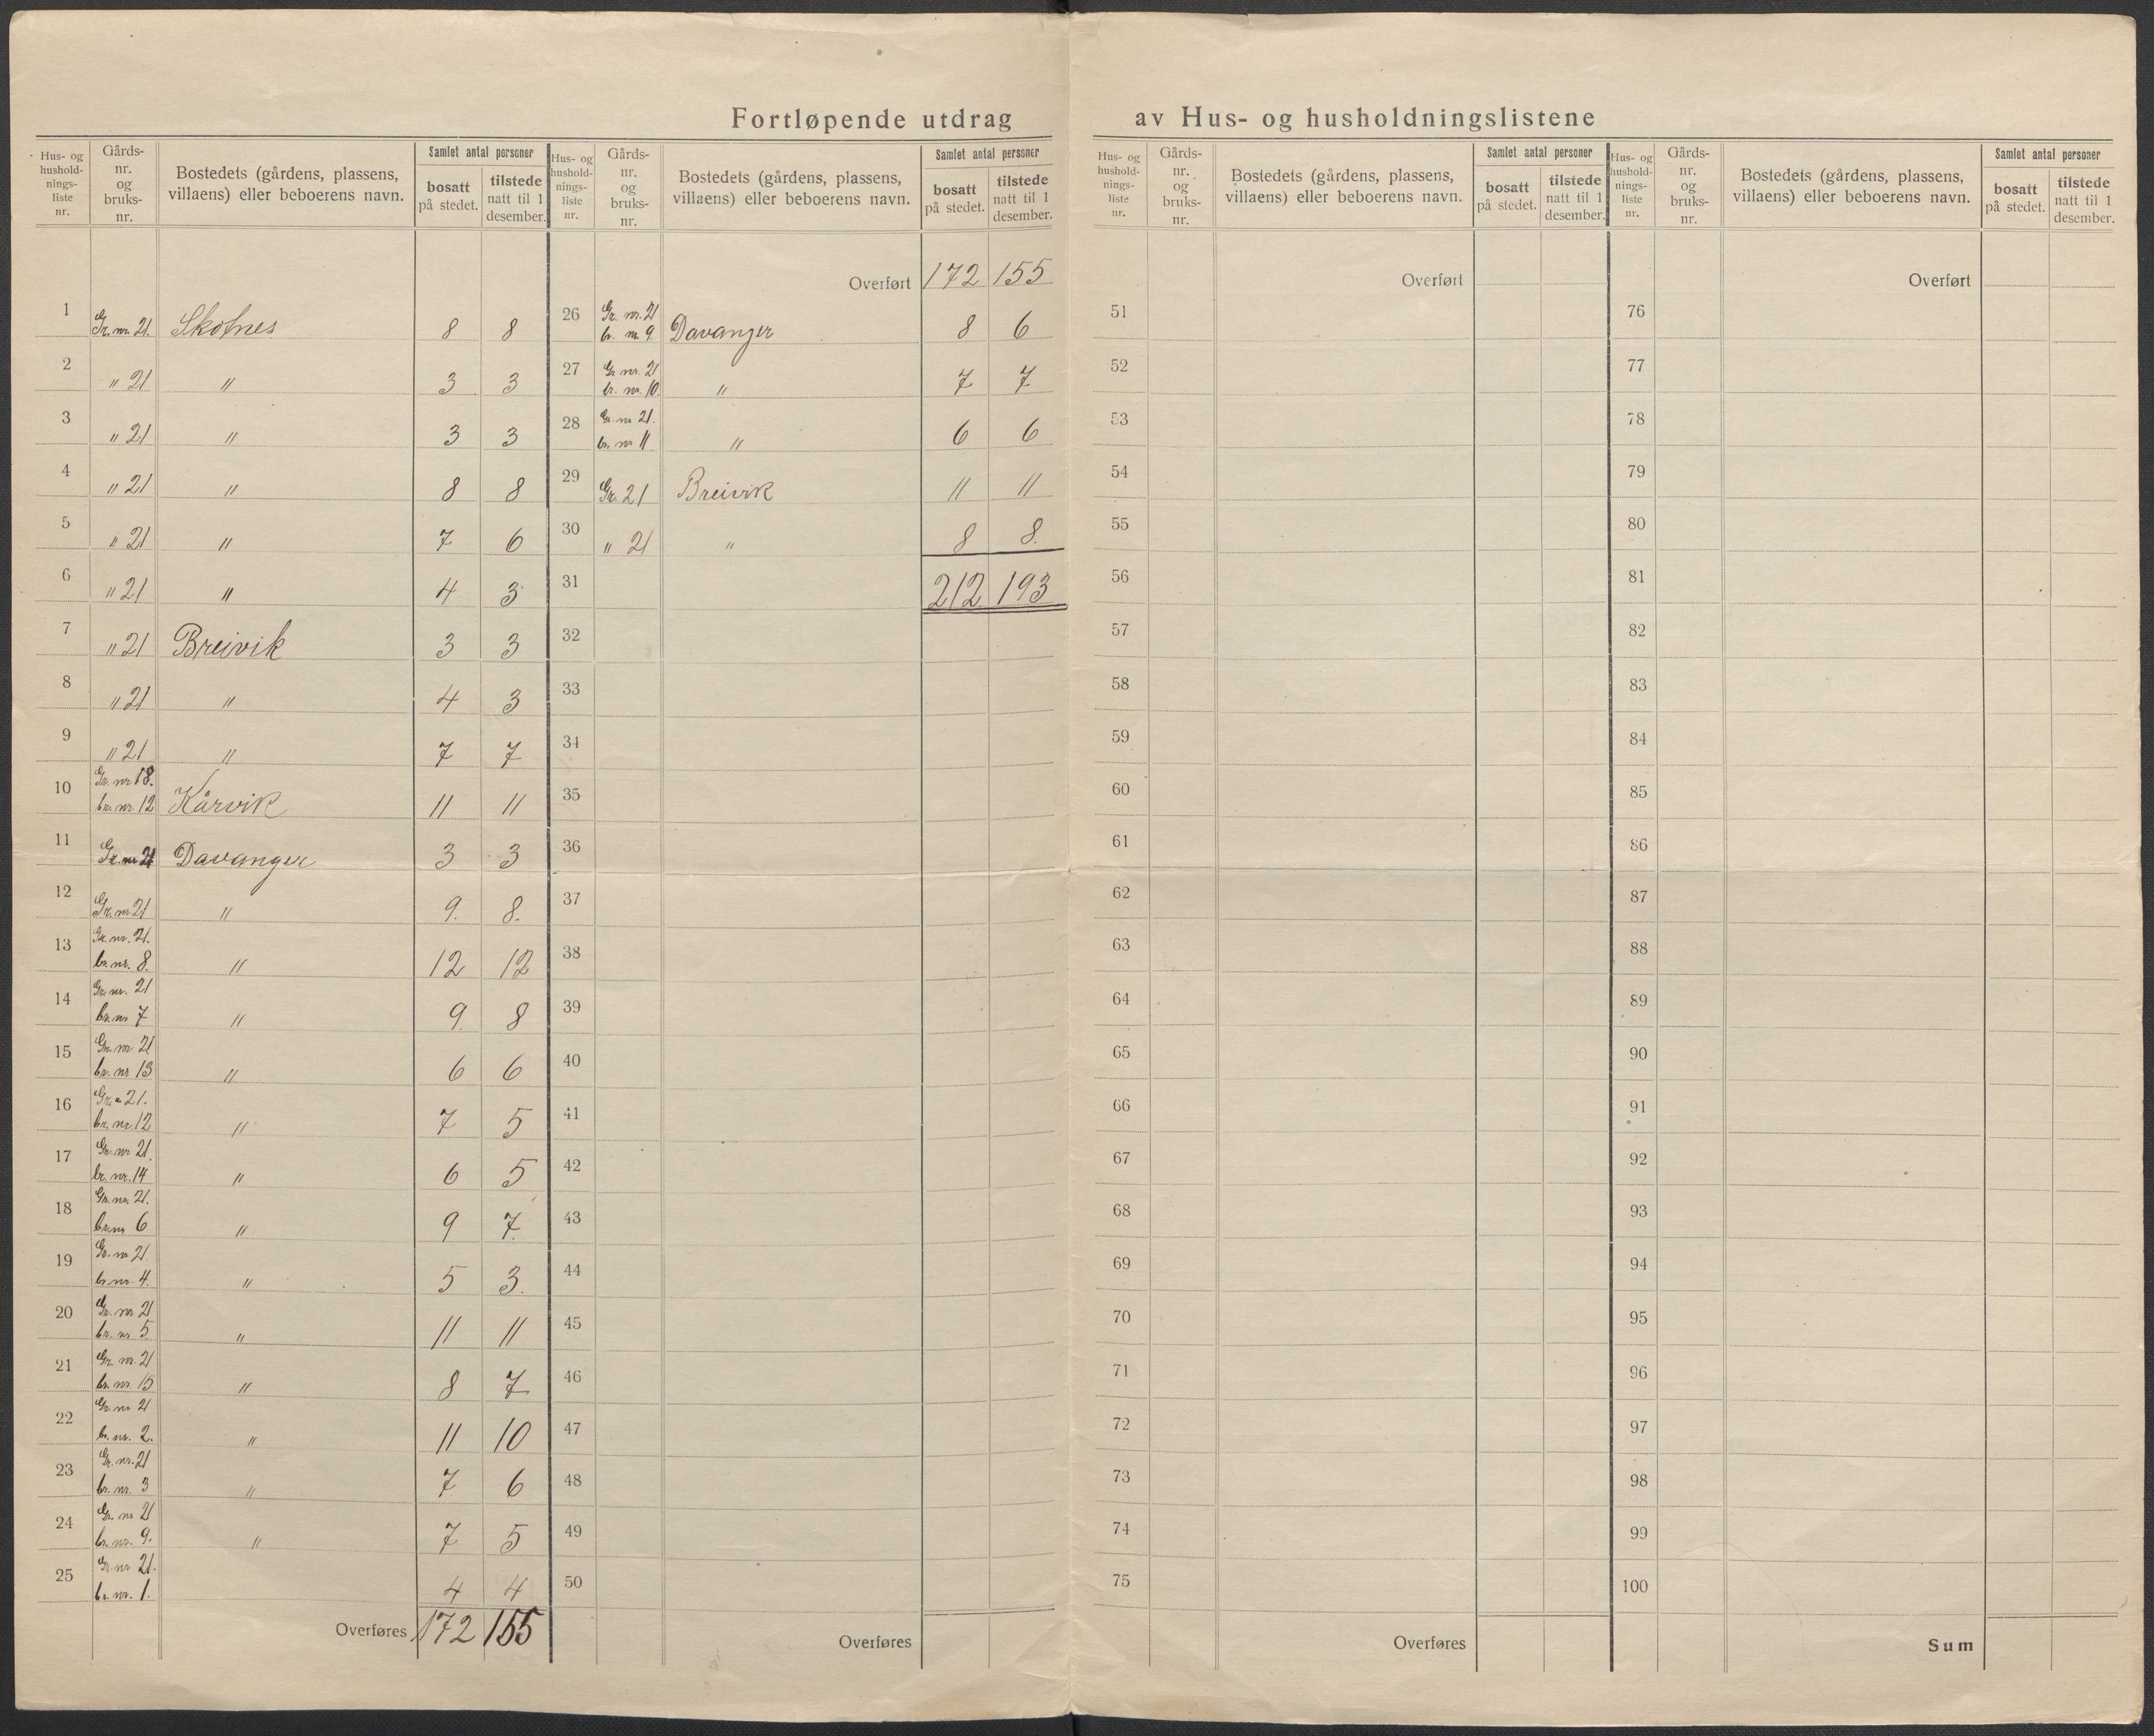 Fortløpende utdrag av Hus- og husholdningslistene
Hus- og hushold-nings-liste nr. Gårds-nr. og bruks-nr. Bostedets (gårdens, plassens, villaens) eller beboerens navn. Samlet antal personer bosatt på stedet. tilstede natt til 1 desember.
1 Gr. nr. 21. Skotnes 8 8
2 " 21 " 3 3
3 " 21 " 3 3
4 " 21 " 8 8
5 " 21 " 7 6
6 " 21 " 4 3
7 " 21 Breivik 3 3
8 " 21 " 4 3
9 " 21 " 7 7
10 Gr. nr 18. br. nr 12 Kårvik 11 11
11 Gr. nr 21 Davanger 3 3
12 Gr. nr 21 " 9. 8.
13 Gr. nr. 21. br. nr. 8. " 12 12
14 Gr. nr. 21 br. nr 7 " 9. 8
15 Gr. nr 21 br. nr 13 " 6 6
16 Gr. " 21. br. nr. 12 " 7 5
17 Gr. nr 21. br. nr. 14 " 6 5
18 Gr. nr. 21. br. nr 6 " 9 7.
19 Gr. nr 21. br. nr. 4. " 5 3.
20 Gr. nr 21 br. nr 5. " 11 11
21 Gr. nr. 21 br. nr. 15 " 8 7
22 Gr. nr 21 br. nr. 2. " 11 10
23 Gr. nr. 21 br. nr. 3 " 7 6
24 Gr. nr 21 br. nr. 9. " 7 5
25 Gr. nr 21. br. nr. 1. 4 4
Overføres 172 155
Hus- og hushold-nings-liste nr. Gårds-nr. og bruks-nr. Bostedets (gårdens, plassens, villaens) eller beboerens navn. Samlet antal personer bosatt på stedet. tilstede natt til 1 desember.
Overført 172 155
26 Gr. nr. 21 br. nr. 9. Davanger 8 6
27 Gr nr. 21 br. nr. 10. " 7 7
28 Gr. nr 21. br. nr 11. " 6 6
29 Gr. 21 Breivik 11 11
30 " 21 " 8 8.
31 212 193
32
33
34
35
36
37
38
39
40
41
42
43
44
45
46
47
48
49
50
Overføres
Hus- og hushold-nings-liste nr. Gårds-nr. og bruks-nr. Bostedets (gårdens, plassens, villaens) eller beboerens navn. Samlet antal personer bosatt på stedet. tilstede natt til 1 desember.
Overført
51
52
53
54
55
56
57
58
59
60
61
62
63
64
65
66
67
68
69
70
71
72
73
74
75
Overføres
Hus- og hushold-nings-liste nr. Gårds-nr. og bruks-nr. Bostedets (gårdens, plassens, villaens) eller beboerens navn. Samlet antal personer bosatt på stedet. tilstede natt til 1 desember.
Overført
76
77
78
79
80
81
82
83
84
85
86
87
88
89
90
91
92
93
94
95
96
97
98
99
100
Sum